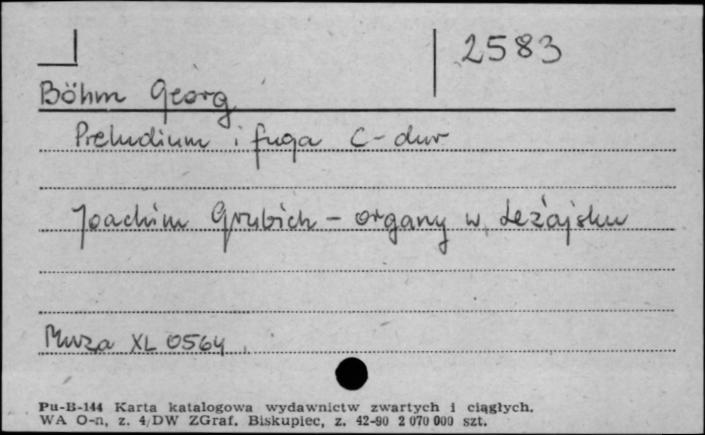 2583
Böhm Georg
Preludium i fuga C-dur
Joachim Grubich - organy w Leżajsku
Muza XL 0564
Pu-B-144 Karta katalogowa wydawnictw zwartych i ciągłych.
WA O-n, z. 4/DW ZGraf. Biskupiec, z. 42-90 2 070 000 szt.